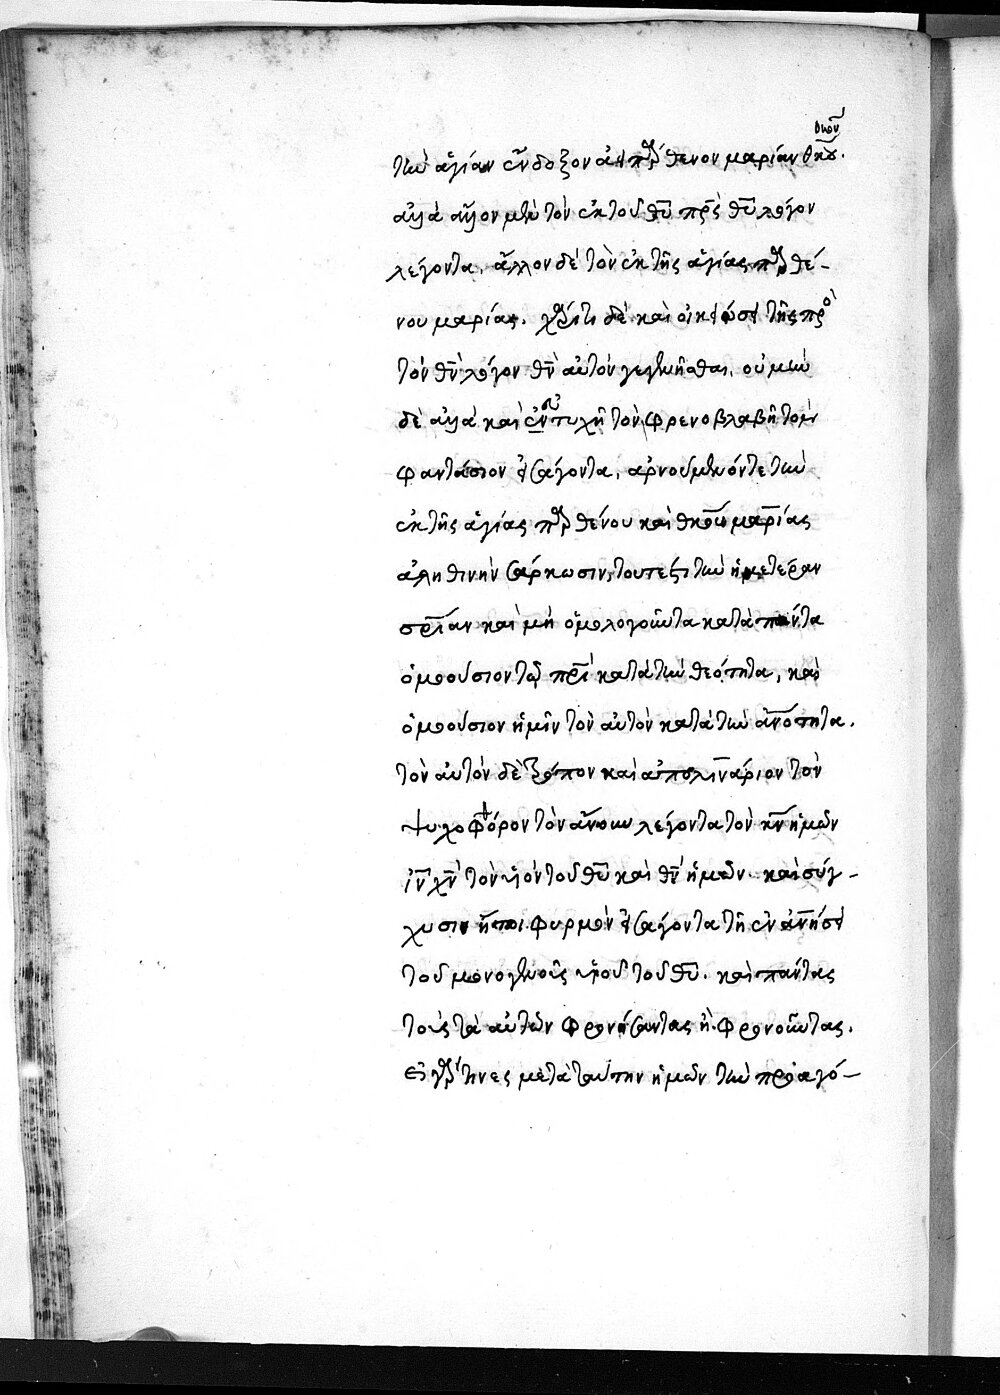 θκον
τὴν ἁγίαν ἔνδοξον ἀειπαρθένον μαρίαν θκου.
ἀλλὰ ἄλλον μὲν τὸν ἐκ τοῦ θυ πρς θυ λόγον
λέγοντα, ἄλλον δὲ τὸν ἐκ τῆς ἁγίας παρθέ-
νου μαρίας. χάριτι δὲ καὶ οἰκειώσει τῆς πρὸ
τὸν θν λόγον θν αὐτὸν γεγενῆσθαι, οὐ μὴν
δὲ ἀλλὰ καὶ εὐτυχῆ τὸν φρενοβλαβῆ τὸν
φαντάσιον εἰσάγοντα, ἀρνούμενόν τε τὴν
ἐκ τῆς ἁγίας παρθένου καὶ θκου μαρίας
ἀληθινὴν σάρκωσιν, τουτέστι τὴν ἡμετέραν
σριαν καὶ μὴ ὁμολογοῦντα κατὰ πάντα
ὁμοούσιον τῷ πρι κατὰ τὴν θεότητα, καὶ
ὁμοούσιον ἡμῖν τὸν αὐτὸν κατὰ τὴν ανότητα.
τὸν αὐτὸν δὲ τρόπον καὶ ἀπολινάριον τὸν
ψυχοφθόρον τὸν ἄνουν λέγοντα τὸν κν ἡμῶν
ιν χν τὸν υἱὸν τοῦ θυ καὶ θν ἡμῶν. καὶ σύγ-
χυσιν ἤτοι φυρμὸν εἰσάγοντα τῇ ἐνανήσει
τοῦ μονογενοῦς υἱοῦ τοῦ θυ. καὶ πάντας
τοὺς τὰ αὐτῶν φρονήσαντας ἢ φρονοῦντας.
εἰ γάρ τινες μετὰ ταύτην ἡμῶν τὴν προαγό-